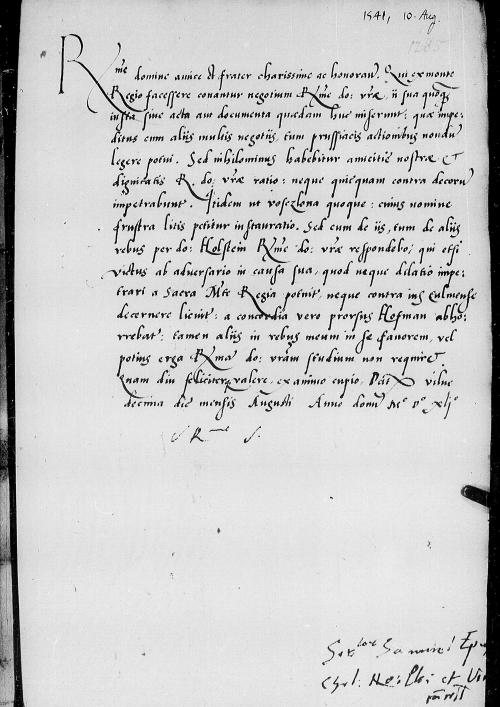 1541, 10. Aug.
1285
Rme domine amice et frater charissime ac honoran. Qui ex monte
Regio facessere conantur negotium Rme do: vrae, ii sua quoq;
iusta sive acta aut documenta quaedam huc miserunt: quae impe:
ditus cum aliis multis negotiis, tum prussiacis actionibus nondu
legere potui. Sed nihilominus habebitur amicitiae nostrae et
dignitatis R. do: vrae ratio: neque quicquam contra decoru
impetrabunt. Itidem ut vosezlona quoque: cuius nomine
frustra litis petitur instauratio. Sed cum de iis, tum de aliis
rebus per do: Holstein Rme do: vrae respondebo, qui etsi
victus ab adversario in causa sua, quod neque dilatio impe:
trari a Sacra Mte Regia potuit, neque contra ius culmense
decernere licuit: a concordia vero prorsus Hofman abho:
rrebat: tamen aliis in rebus meum in se favorem, vel
potius erga Rma do: vram studium non requiret.
Quam diu feliciter valere, ex animo cupio. Dat Vilnae
decima die mensis Augusti Anno domi Mo Do xljo
R
Samuel Ep
et